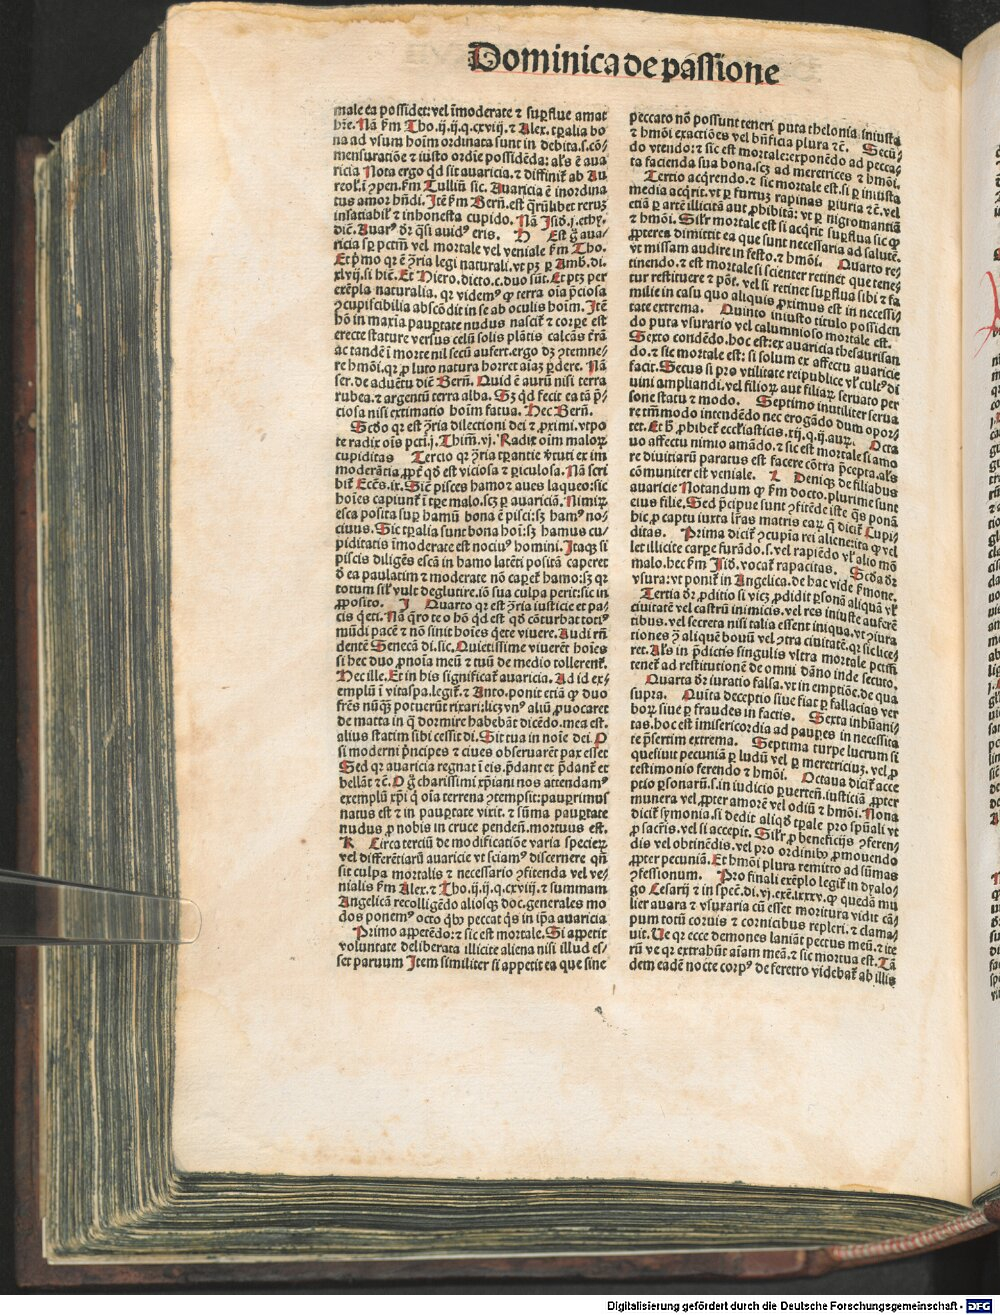 Dominica de passione
male ea possidet: vel īmoderate ⁊ suꝑflue amat
hr̄e. Nā ẜm Tho. ij. ij. q. cxviij. ⁊ Alex. tꝑalia bo
na ad vsum hoīm ordinata sunt in debita. s. cō-
mensuratiōe ⁊ iusto ordīe possidēda: al̓s ē aua
ricia Nota ergo qd̓ sit auaricia. ⁊ diffinit̉ ab Au
reol. ī ꝯpen. ẜm Tulliū sic. Auaricia ē inordina
tus amor hn̄di. Itē ẜm Bern̄. est qr̄ūlibet rerum
insatiabil̓ ⁊ inhonesta cupido. Nā Isid. j. ethy.
dic̄. Auarꝰ dr̄ q̄si auidꝰ eris. H Est g̊ aua-
ricia sp̄ pctm̄ vel mortale vel veniale ẜm Tho.
Et p̄mo qr ē ꝯ̄ria legi naturali. vt pꝫ ꝑ Amb. di.
xlvij. si hic̄. Et Hiero. dicto. c. duo sūt. Et ptꝫ per
exēpla naturalia. qr videmꝰ ꝙ terra oīa p̄ciosa
⁊ ꝯcupiscibilia abscōdit in se ab oculis hoīm. Itē
hō in maxīa pauꝑtate nudus nascit̉ ⁊ corꝑe est
erecte stature versus celū solis plātis calcās t̓rā
ac tandē ī morte nil secū aufert. ergo dꝫ ꝯtemne-
re hmōi. qr ꝓ luto natura horret aīaꝫ ꝑdere. Nā
ser. de aduētu dic̄ Bern̄. Quid ē aurū nisi terra
rubea. ⁊ argentū terra alba. Sꝫ qd̓ fecit ea tā p̄-
ciosa nisi extimatio hoīm fatua. Hec Bern̄.
Scd̓o qr est ꝯ̄ria dilectioni dei ⁊ ꝓximi. vtpo
te radix oīs pcti. j. Thim̄. vj. Radix oīm maloꝝ
cupiditas Tercio qr ꝯ̄ria tꝑantie v̓tuti ex im
moderātia, ꝓpt̓ qd̓ est viciosa ⁊ ꝑiculosa. Nā scri
bit̉ Ecc̄s. ix. Sic̄ pisces hamo ⁊ aues laqueo: sic
hoīes capiunt̉ ī tꝑe malo. scꝫ ꝑ auariciā. Nimiꝝ
esca posita suꝑ hamū bona ē pisci: sꝫ hamꝰ no-
ciuus. Sic tꝑalia sunt bona hoī: sꝫ hamus cu-
piditatis īmoderate est nociuꝰ homini. Itaqꝫ si
piscis diligēs escā in hamo latēti positā caperet
ꝺ ea paulatim ⁊ moderate nō caꝑet̉ hamo: sꝫ qr
totum sil̓ vult deglutire. iō sua culpa perit: sic in
ꝓposito. I Quarto qr est ꝯ̄ria iusticie et pa-
cis q̄eti. Nā q̄ro te o hō qd̓ est qd̓ cōturbat totiꝰ
mūdi pacē ⁊ nō sinit hoīes q̄ete viuere. Audi rn̄
dentē Senecā di. sic. Quietissime viuerēt hoīes
si hec duo ꝓnoīa meū ⁊ tuū de medio tollerent̉.
Hec ille. Et in his significat̉ auaricia. Ad id ex-
emplū ī vitaspa. legit̉. ⁊ Anto. ponit etiā ꝙ duo
fr̄es nūqꝫ potuerūt rixari: licꝫ vnꝰ aliū ꝓuocaret
de matta in q̄ dormire habebāt dicēdo. mea est.
alius statim sibi cessit di. Sit tua in noīe dei. O
si moderni p̄ncipes ⁊ ciues obseruarēt pax esset
Sed qr auaricia regnat ī eis. p̄dant̉ et p̄dant̉ et
bellāt ⁊c̄. O g̊ charissimi xp̄iani nos attendamꝰ
exemplū xp̄i q̄ oīa terrena ꝯtempsit: pauꝑrimus
natus est ⁊ in pauꝑtate vixit. ⁊ sūma pauꝑtate
nudus ꝓ nobis in cruce penden̄. mortuus est.
K Circa terciū de modificatiōe varia specieꝝ
vel differētiarū auaricie vt sciamꝰ discernere qn̄
sit culpa mortalis ⁊ necessario ꝯfitenda vel ve-
nialis ẜm Alex. ⁊ Tho. ij. ij. q. cxviij. ⁊ summam
Angelicā recolligēdo aliosqꝫ doc. generales mo
dos ponemꝰ octo qb̓ꝫ peccat q̊s in ip̄a auaricia
Primo appetēdo: ⁊ sic est mortale. Si appetit
voluntate deliberata illicite aliena nisi illud es-
set paruum Item similiter si appetit ea que sine
peccato nō possunt teneri puta thelonia iniusta
⁊ hmōi exactiōes vel bn̄ficia plura ⁊c̄. Secū-
do vtendo: ⁊ sic est mortale: exponēdo ad pecca-
ta facienda sua bona. scꝫ ad meretrices ⁊ hmōi.
Tercio acqrendo. ⁊ sic mortale est. si ꝑ iniusta
media acqrit. vt ꝑ furtuꝫ rapinas ꝑiuria ⁊c̄. vel
etiā ꝑ artē illicitā aut ꝓhibitā: vt ꝑ nigromantiā
⁊ hmōi. Sil̓r mortale est si acqrit suꝑflua sic ꝙ
ꝓpteres dimittit ea que sunt necessaria ad salutē.
vt missam audire in festo. ⁊ hmōi. Quarto re-
tinendo. ⁊ est mortale si scienter retinet que tene-
tur restituere ⁊ pōt. vel si retinet suꝑflua sibi ⁊ fa
milie in casu quo aliquis ꝓximus est in necessi
tate extrema. Quinto iniusto titulo possiden
do puta vsurario vel calumnioso mortale est.
Sexto condēdo. hoc est: ex auaricia thesaurisan
do. ⁊ sic mortale est: si solum ex affectu auaricie
facit. Secus si pro vtilitate reipublice vl̓ cultꝰ di
uini ampliandi. vel filioꝝ aut filiaꝝ seruato per
sone statu ⁊ modo. Septimo inutiliter serua
re tm̄modo intendēdo nec erogādo dum opor-
tet. Et h̓ ꝓhibet̉ ecclīasticis. xij. q. ij. auꝝ. Octa
uo affectu nimio amādo. ⁊ sic est mortale si amo
re diuitiarū paratus est facere cōtra p̄cepta. al̓s
cōmuniter est veniale. L Deniqꝫ de filiabus
auaricie Notandum ꝙ ẜm docto. plurime sunt
eius filie. Sed p̄cipue sunt ꝯfitēde iste q̄s ponā
hic, ꝓ captu iuxta lr̄as matris earꝝ q̄ dicit̉ Cupi
ditas. Prima dicit̉ ꝯcupīa rei aliene: ita ꝙ vel
let illicite carꝑe furādo. s. vel rapiēdo vl̓ alio mō
malo. hec ẜm Isid. vocat̉ rapacitas. Scd̓a dr̄
vsura: vt ponit̉ in Angelica. de hac vide ẜmone.
Tertia dr̄ ꝓditio si vicꝫ ꝓdidit ꝑsonā aliquā vl̓
ciuitatē vel castrū inimicis. vel res iniuste auferē
tibus. vel secreta nisi talia essent iniqua. vt ꝯiura
tiones ꝯ̄ aliquē bonū vel ꝯtra ciuitatē. qr sic lice-
ret. Al̓s in p̄dictis singulis vltra mortale pctm̄
tenet̉ ad restitutionē de omni dāno inde secuto.
Quarta dr̄ iuratio falsa. vt in emptiōe. de qua
supra. Quīta deceptio siue fiat ꝑ fallacias ver
boꝝ siue ꝑ fraudes in factis. Sexta inhūani-
tas. hoc est imisericordia ad pauꝑes in necessita
te p̄sertim extrema. Septima turpe lucrum si
quesiuit pecuniā ꝑ ludū vel ꝑ meretriciuꝫ. vel, ꝓ
testimonio ferendo ⁊ hmōi. Octaua dicit̉ acce
ptio ꝑsonarū. s. in iudicio ꝑuerten̄. iusticiā ꝓpter
munera vel, ꝓpter amorē vel odiū ⁊ hmōi. Nona
dicit̉ symonia. si dedit aliqd̓ tꝑale pro spūali vt
ꝓ sacr̄is. vel si accepit. Sil̓r ꝓ beneficijs ꝯferen-
dis vel obtinēdis. vel pro ordinibꝫ ꝓmouendo
ꝓpter pecuniā. Et hmōi plura remitto ad sūmas
ꝯfessionum. Pro finali exēplo legit̉ in dyalo-
go Cesarij ⁊ in spec̄. di. vj. exē. lxxxv. ꝙ quedā mu
lier auara ⁊ vsuraria cū esset moritura vidit cā-
pum totū coruis ⁊ cornicibus repleri. ⁊ clama-
uit. Ve qr ecce demones laniāt pectus meū. ⁊ ite
rū ve qr extrahūt aīam meā. ⁊ sic mortua est. Tā
dem eadē nocte corpꝰ de feretro videbat̉ ab illis
Digitalisierung gefördert durch die Deutsche Forschungsgemeinschaft - DFG